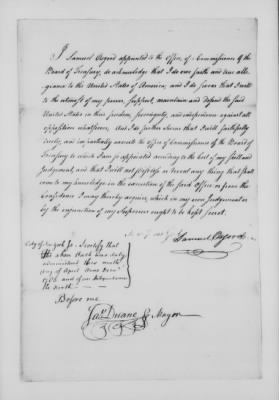 I Samuel Osgood appointed to the Office of Commissioner of the
Board of Treasury, do acknowledge that I do owe faith and true alle-
giance to the United States of America, and I do swear that I will
to the utmost of my power, support, maintain and defend the said
United States in their freedom, sovereignty, and independence against all
opposition whatsoever. And I do further swear that I will faithfully
justly, and impartially execute the office of Commissioner of the Board of
Treasury to which I am so appointed according to the best of my skill and
judgement, and that I will not disclose or reveal any thing that shall
come to my knowledge in the execution of the said Office or from the
Confidence I may thereby acquire, which in my own Judgement or
by the injunction of my Superiors ought to be kept secret.
Samuel Osgood
City of New York Ss. I certify that
the above Oath was duly
administered this ninth
day of April Anno Dom
and of our Independence
the Ninth
Before me
Jas. Duane Mayor